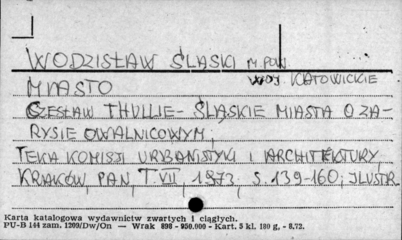 WODZISŁAW ŚLĄSKI M. POW.
WOJ. KATOWICKIE
MIASTO
CZESŁAW THULLIE - ŚLĄSKIE MIASTA O ZA-
RYSIE OWALNICOWYM;
TEKA KOMISJI URBANISTYKI I ARCHITEKTURY,
KRAKÓW, PAN, T. VII, 1973 S. 139-160; ILUSTR.
Karta katalogowa wydawnictw zwartych i ciągłych.
PU-B 144 zam. 1209/Dw/On — Wrak 898 - 950.000 - Kart. 5 kl. 180 g, - 8.72.